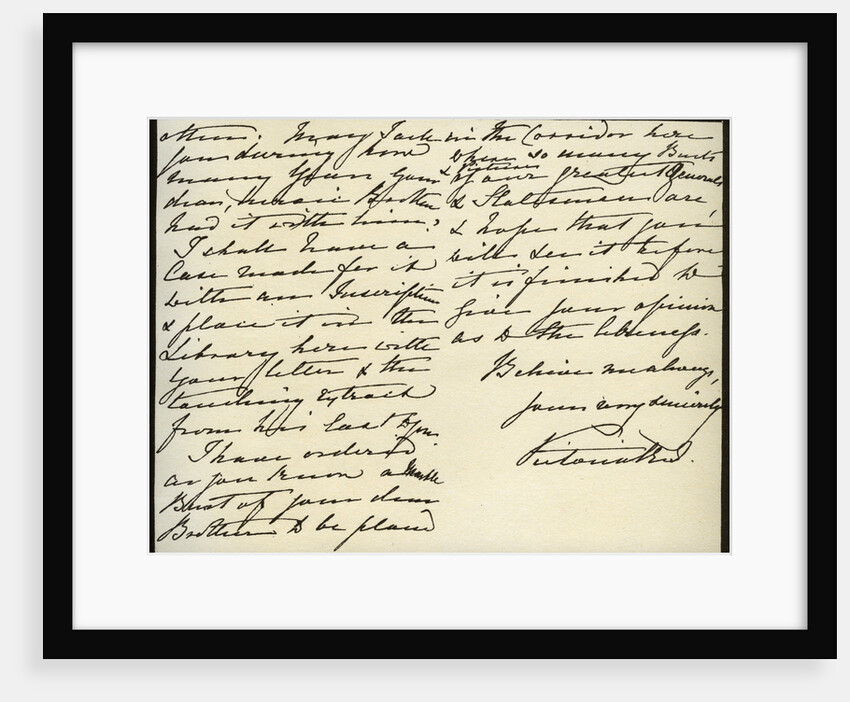 others. May I ask
you during how
many years your
dear, heroic Brother
had it with him?
I shall have a
Case made for it
with an Inscription
& place it in the
Library here with
your letter & the
touching extract
from his last to you.
I have ordered
as you know a Marble
Bust of your dear
Brother to be placed
in the Corridor here
where so many Busts
& Pictures
of our greatest Generals
& Statesmen are,
& hope that you
will see it before
it is finished to
give your opinion
as to the likeness.
Believe me always,
yours very sincerely
Victoria R I.